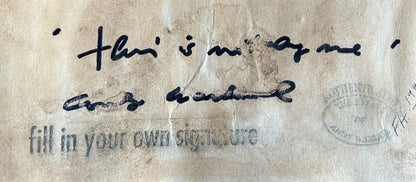 "this is not by me"
Andy Warhol
fill in your own signature
AUTHENTICATED
THE ESTATE
OF
ANDY WARHOL